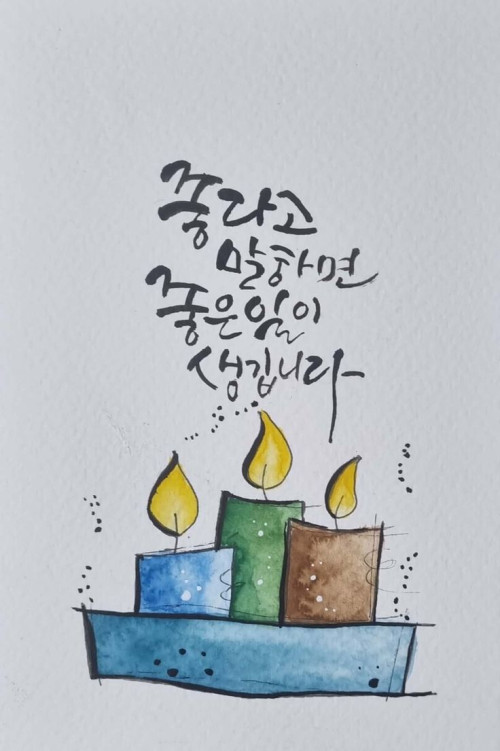 좋다고
말하면
좋은일이
생깁니다